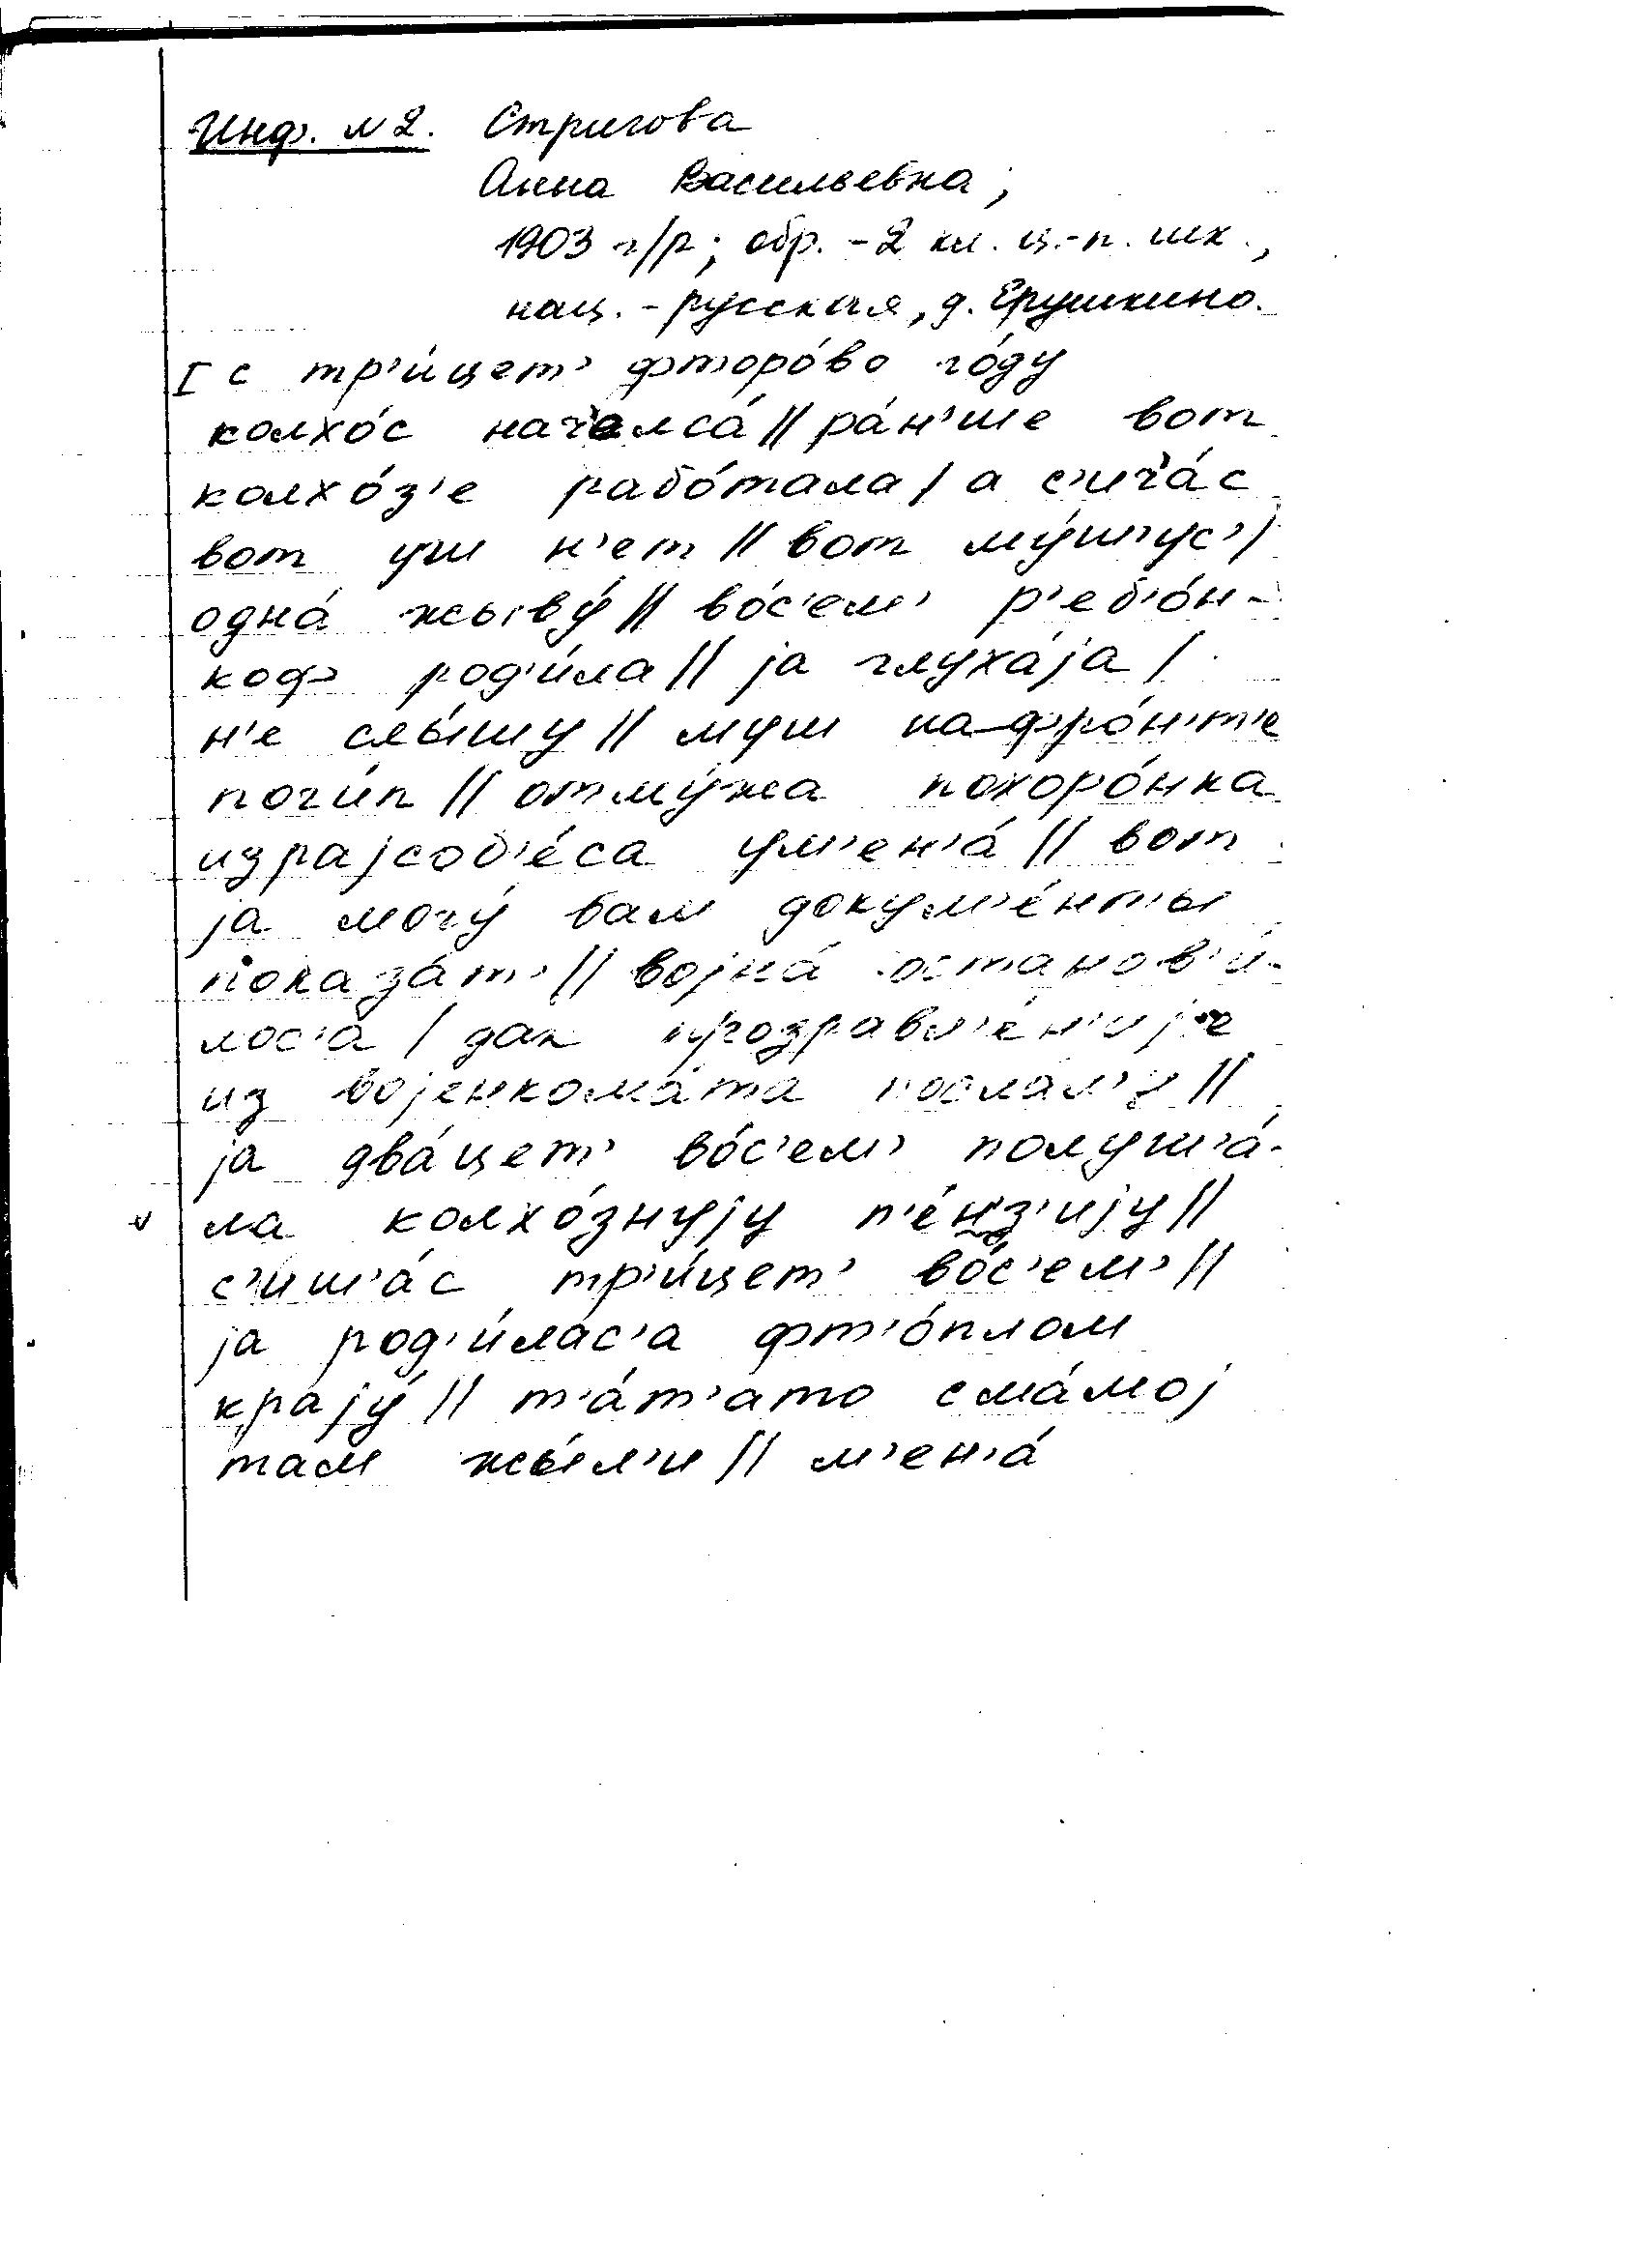 Инф. №2. Стригова
Анна Васильевна;
1903 г/р; обр. -2 кл. ц.-п. шк.,
нац. - русская, д. Ерушкино.
[ с тр'и́цет' фторо́во го́ду
колхо́с нач'алса́ // ра́н'ше вот
колхо́з'е рабо́тала / а с'ич'а́с
вот уш н'ет // вот му́ш'ус' /
одна́ жыву́ // во́с'ем' р'еб'о́н-
коф род'и́ла // ја глуха́ја /
н'е слы́шу // муш на фро́н'т'е
поги́п // отму́жа похоро́нка
израјсоб'е́са ум'ен'а́ // вот
ја могу́ вам докум'е́нты
показа́т' // војна́ останов'и́-
лос'а / дак проздравл'е́н'иј'е
из војенкома́та послал'и //
ја два́цет' во́с'ем' полуш'а́-
ла колхо́знују п'е́нз'ију //
с'иш'а́с тр'и́цет' во́с'ем' //
ја род'и́лас'а фт'о́плом
крају́ // т'а́т'ато сма́мој
там жы́л'и // м'ен'а́